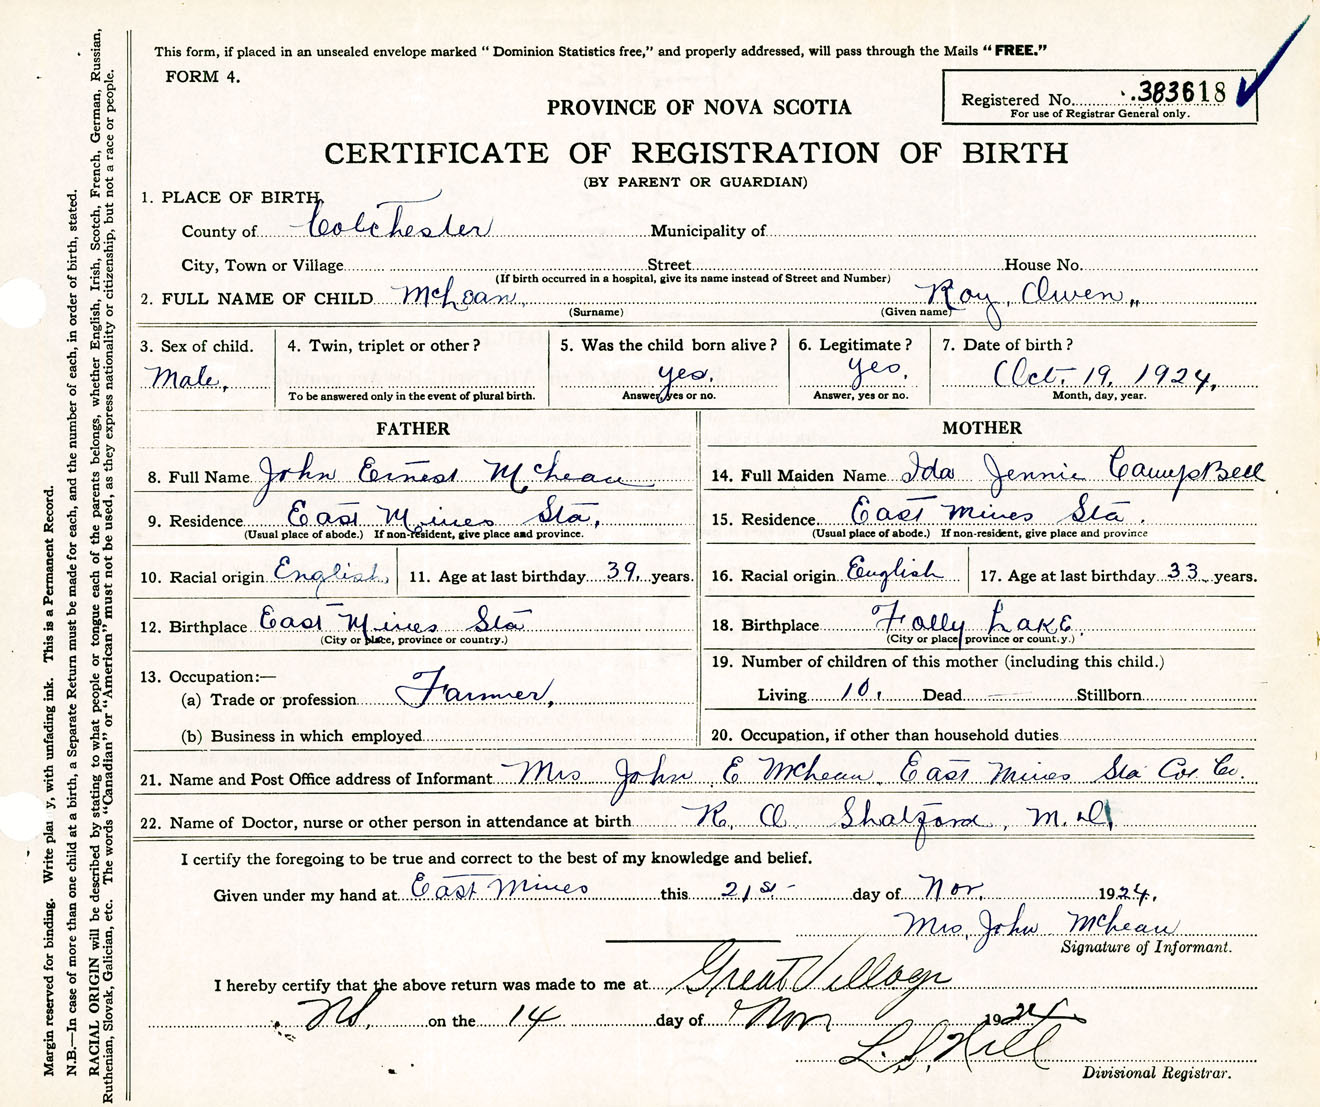 This form, if placed in an unsealed envelope marked "Dominion Statistics free," and properly addressed, will pass through the Mails "FREE."
FORM 4.
Registered No. 383618
For use of Registrar General only.
PROVINCE OF NOVA SCOTIA
CERTIFICATE OF REGISTRATION OF BIRTH
(BY PARENT OR GUARDIAN)
1. PLACE OF BIRTH,
County of Colchester Municipality of
City, Town or Village Street House No.
(If birth occurred in a hospital, give its name instead of Street and Number)
2. FULL NAME OF CHILD McLean, Roy, Owen,,
(Surname) (Given name)
3. Sex of child. 4. Twin, triplet or other? 5. Was the child born alive? 6. Legitimate? 7. Date of birth?
Male, yes. yes. Oct. 19, 1924,
To be answered only in the event of plural birth. Answer, yes or no. Answer, yes or no. Month, day, year.
FATHER MOTHER
8. Full Name John Ernest McLean 14. Full Maiden Name Ida Jennie CampBell
9. Residence East Mines Sta, 15. Residence East Mines Sta.
(Usual place of abode.) If non-resident, give place and province. (Usual place of abode.) If non-resident, give place and province
10. Racial origin English, 11. Age at last birthday 39, years. 16. Racial origin English 17. Age at last birthday 33 years.
12. Birthplace East Mines Sta 18. Birthplace Folly Lake,
(City or place, province or country.) (City or place, province or country.)
19. Number of children of this mother (including this child.)
13. Occupation:—
(a) Trade or profession Farmer, Living 10, Dead — Stillborn
(b) Business in which employed 20. Occupation, if other than household duties
21. Name and Post Office address of Informant Mrs John E McLean East Mines Sta Col Co.
22. Name of Doctor, nurse or other person in attendance at birth R. O Shatford, M.D,
I certify the foregoing to be true and correct to the best of my knowledge and belief.
Given under my hand at East Mines this 21st- day of Nov, 1924,
Mrs, John McLean
Signature of Informant.
I hereby certify that the above return was made to me at Great Village
NS, on the 14 day of Nov 1924
L. S. Hill
Divisional Registrar.
Margin reserved for binding. Write plainly, with unfading ink. This is a Permanent Record.
N.B.—In case of more than one child at a birth, a Separate Return must be made for each, and the number of each, in order of birth, stated.
RACIAL ORIGIN will be described by stating to what people or tongue each of the parents belongs, whether English, Irish, Scotch, French, German, Russian,
Ruthenian, Slovak, Galician, etc. The words "Canadian" or "American" must not be used, as they express nationality or citizenship, but not a race or people.